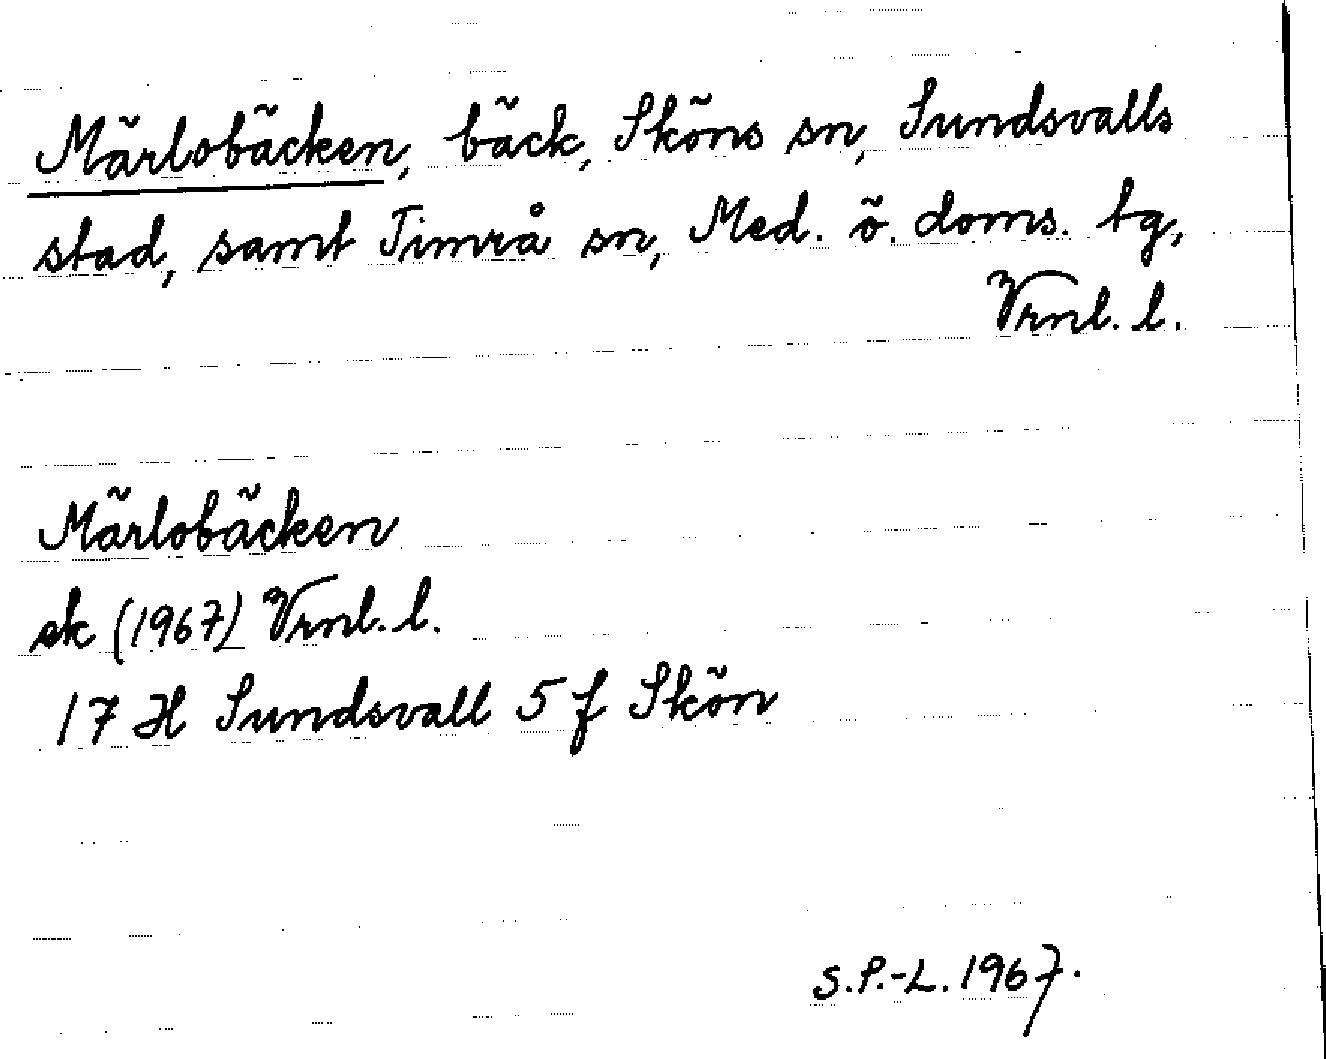 Märlobäcken, bäck, Sköns sn, Sundsvalls
stad, samt Timrå sn, Med. ö. doms. tg,
Vrnl. l.
Märlobäcken
ek (1967) Vrnl. l.
17 H Sundsvall 5 f Skön
S.P.-L. 1967.